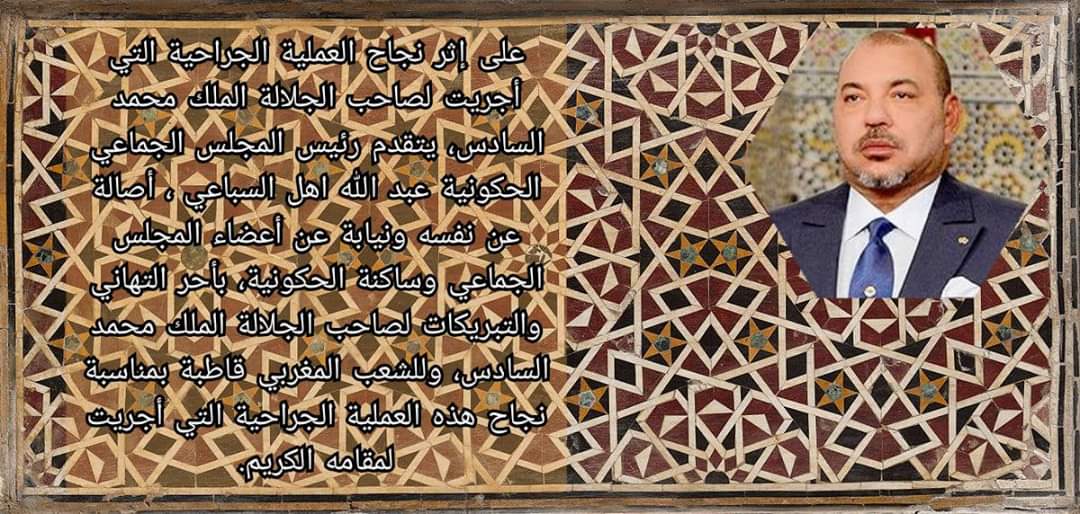 على إثر نجاح العملية الجراحية التي
أجريت لصاحب الجلالة الملك محمد
السادس، يتقدم رئيس المجلس الجماعي
الحكونية عبد الله اهل السباعي ، أصالة
عن نفسه ونيابة عن أعضاء المجلس
الجماعي وساكنة الحكونية، بأحر التهاني
والتبريكات لصاحب الجلالة الملك محمد
السادس، وللشعب المغربي قاطبة بمناسبة
نجاح هذه العملية الجراحية التي أجريت
لمقامه الكريم.